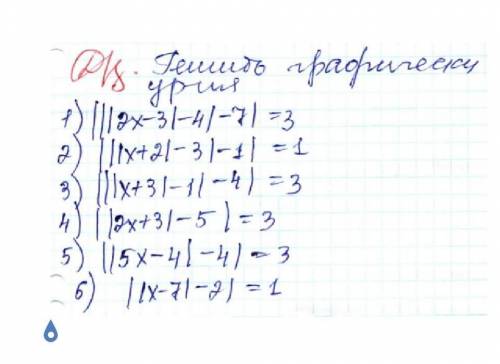 Д/з. Решить графически
ур-ия
1) |||2x-3|-4|-7|=3
2) |||x+2|-3|-1|=1
3) |||x+3|-1|-4|=3
4) ||2x+3|-5|=3
5) ||5x-4|-4|=3
6) ||x-7|-2|=1